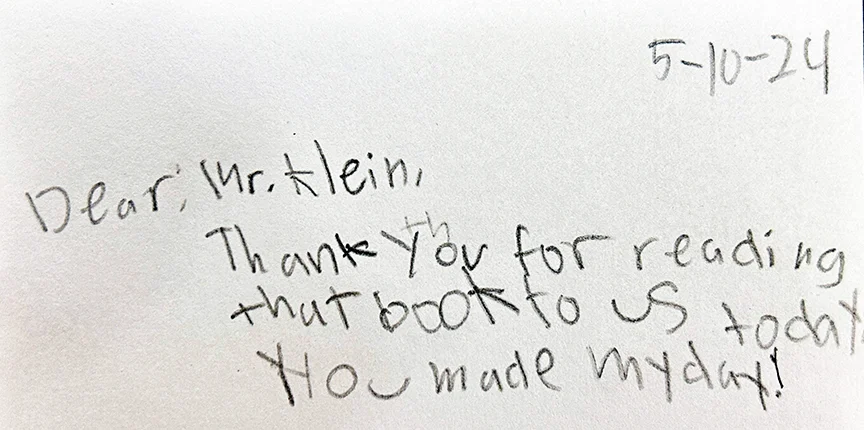 5-10-24
Dear, Mr. Klein,
Thank you for reading
that book to us today.
You made my day!